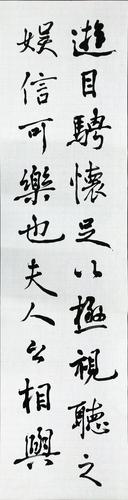 遊目騁懷足以極視聽之
娛信可樂也夫人之相與